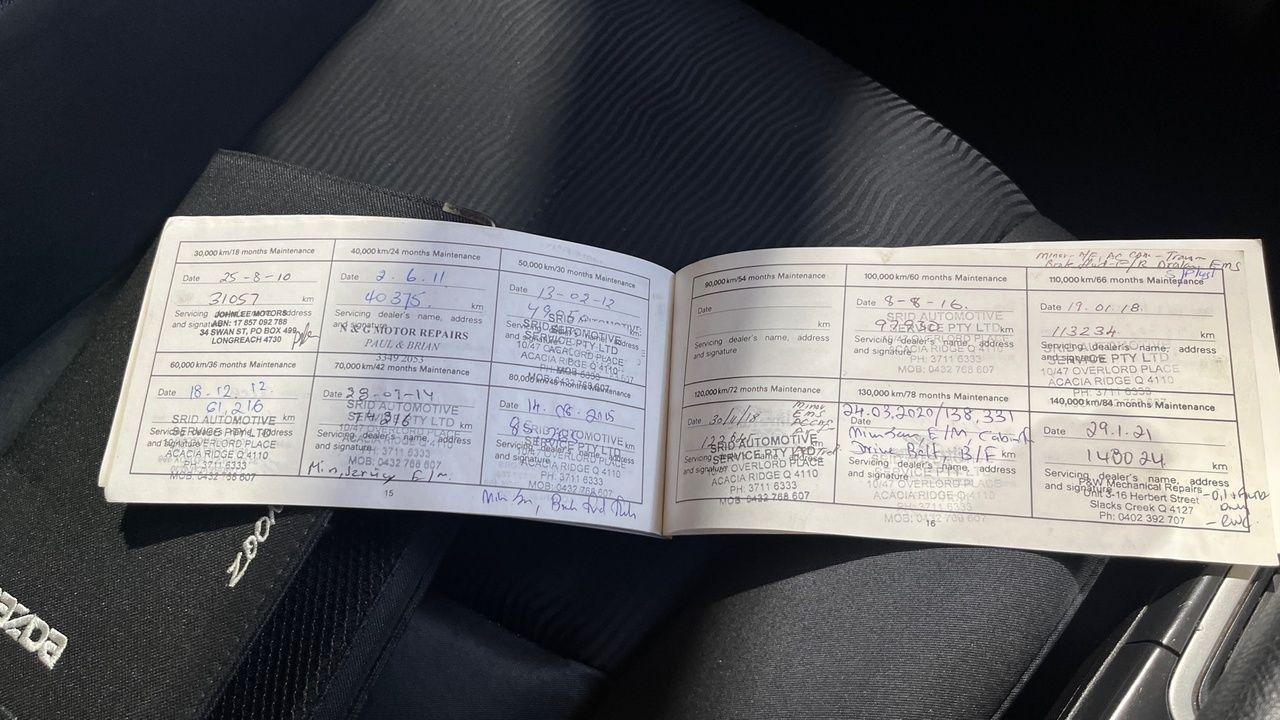 30,000 km/18 months Maintenance
Date 25-8-10
31057 km
Servicing dealer's name, address
and signature
JOHN LEE MOTORS
ABN: 17 857 092 788
34 SWAN ST, PO BOX 499
LONGREACH 4730
40,000 km/24 months Maintenance
Date 2.6.11
40375 km
Servicing dealer's name, address
and signature
MOTOR REPAIRS
PAUL & BRIAN
3349 2053
50,000 km/30 months Maintenance
Date 13-02-12
SRID AUTOMOTIVE
SERVICE PTY LTD
10/47 OVERLORD PLACE
ACACIA RIDGE Q 4110
MOB: 0432 768 607
60,000 km/36 months Maintenance
Date 18.12.12.
61,216 km
Servicing dealer's name, address
and signature
SRID AUTOMOTIVE
SERVICE PTY LTD
10/47 OVERLORD PLACE
ACACIA RIDGE Q 4110
PH: 3711 6333
MOB: 0432 768 607
70,000 km/42 months Maintenance
Date 28-07-14
km
Servicing dealer's name, address
and signature
SRID AUTOMOTIVE
SERVICE PTY LTD
10/47 OVERLORD PLACE
ACACIA RIDGE Q 4110
PH: 3711 6333
MOB: 0432 768 607
Min, Service E/M.
80,000 km/48 months Maintenance
Date 14.08.2015
km
Servicing dealer's name, address
and signature
SRID AUTOMOTIVE
SERVICE PTY LTD
10/47 OVERLORD PLACE
ACACIA RIDGE Q 4110
PH: 3711 6333
MOB: 0432 768 607
15
90,000 km/54 months Maintenance
Date
km
Servicing dealer's name, address
and signature
100,000 km/60 months Maintenance
Date 8-8-16.
97830 km
Servicing dealer's name, address
and signature
SERVICE PTY LTD
OVERLORD PLACE
ACACIA RIDGE Q 4110
PH: 3711 6333
MOB: 0432 768 607
110,000 km/66 months Maintenance
Date 19.01.18.
113234 km
Servicing dealer's name, address
and signature
SERVICE PTY LTD
10/47 OVERLORD PLACE
ACACIA RIDGE Q 4110
120,000 km/72 months Maintenance
Date 30/11/18
km
Servicing dealer's name, address
and signature
SRID AUTOMOTIVE
SERVICE PTY LTD
10/47 OVERLORD PLACE
ACACIA RIDGE Q 4110
PH: 3711 6333
MOB: 0432 768 607
130,000 km/78 months Maintenance
24.03.2020/138,331
Date
Min Ser, E/M, Cabin
Drive Belt, B/F
Servicing dealer's name, address
and signature
10/47 OVERLORD PLACE
ACACIA RIDGE Q 4110
PH: 3711 6333
MOB: 0432 768 607
140,000 km/84 months Maintenance
Date 29.1.21
140024 km
Servicing dealer's name, address
and signature
P&W Mechanical Repairs
Unit 3-16 Herbert Street
Slacks Creek Q 4127
Ph: 0402 392 707
16
mazda